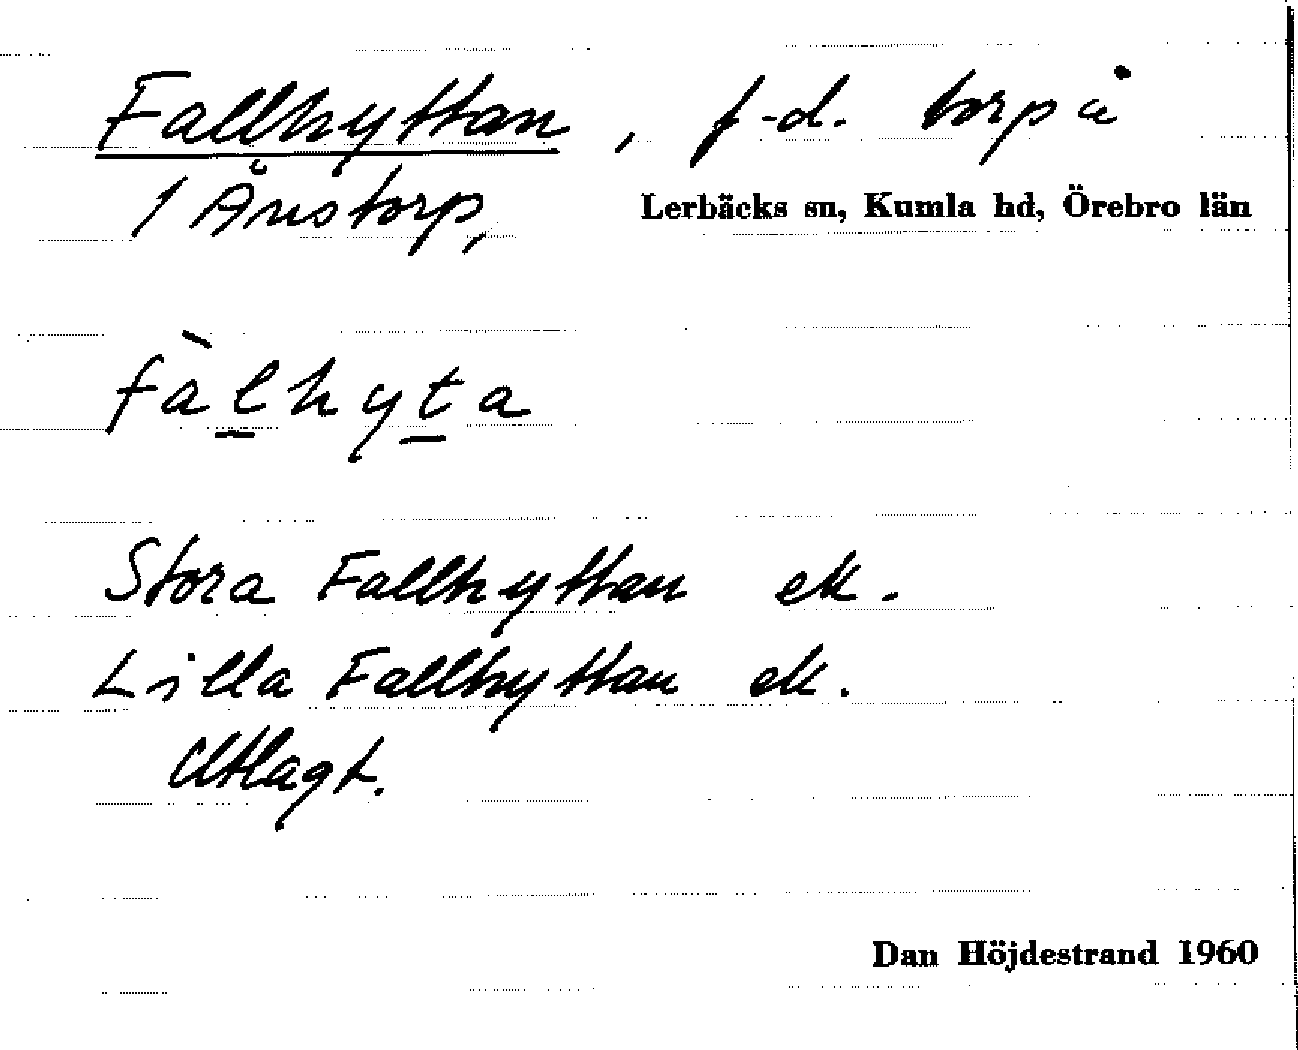 Fallhyttan, f.d. torp å
1 Ånstorp, Lerbäcks sn, Kumla hd, Örebro län
fàlhyta
Stora Fallhyttan ek.
Lilla Fallhyttan ek.
Utlagt.
Dan Höjdestrand 1960